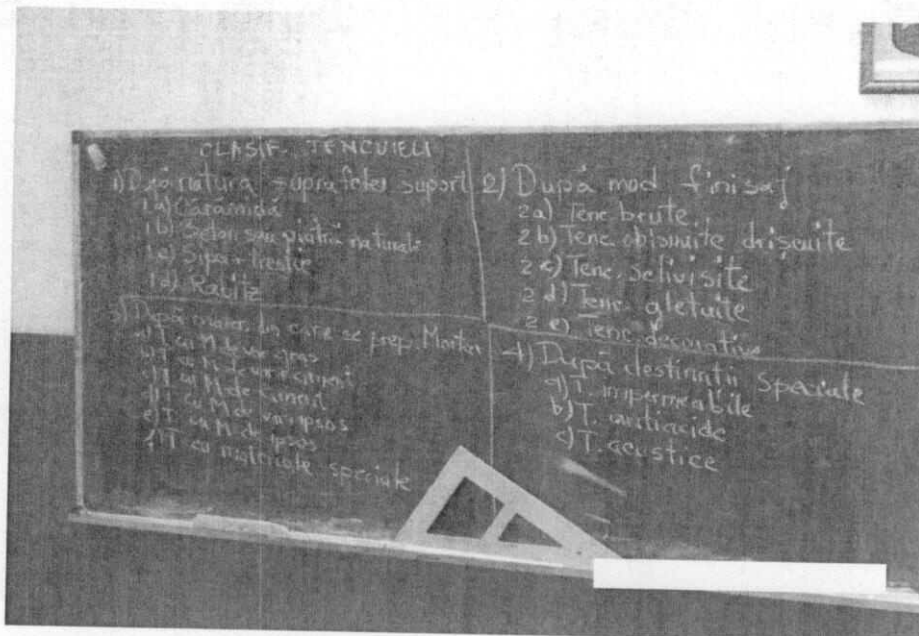 CLASIF. TENCUIELI
1) După natura suprafeței suport
1a) Cărămidă
1b) Beton sau piatră naturală
1c) Șipci + trestie
1d) Rabitz
2) După mod finisaj
2a) Tenc. brute
2b) Tenc. obișnuite drișcuite
2c) Tenc. sclivisite
2d) Tenc. gletuite
2e) Tenc. decorative
3) După mater. din care se prep. Mortar
a) T. cu M. de var gras
b) T. cu M. de var ciment
c) T. cu M. de ciment
d) T. cu M. de var ipsos
e) T. cu M. de ipsos
f) T. cu materiale speciale
4) După destinații speciale
a) T. impermeabile
b) T. antiacide
c) T. acustice